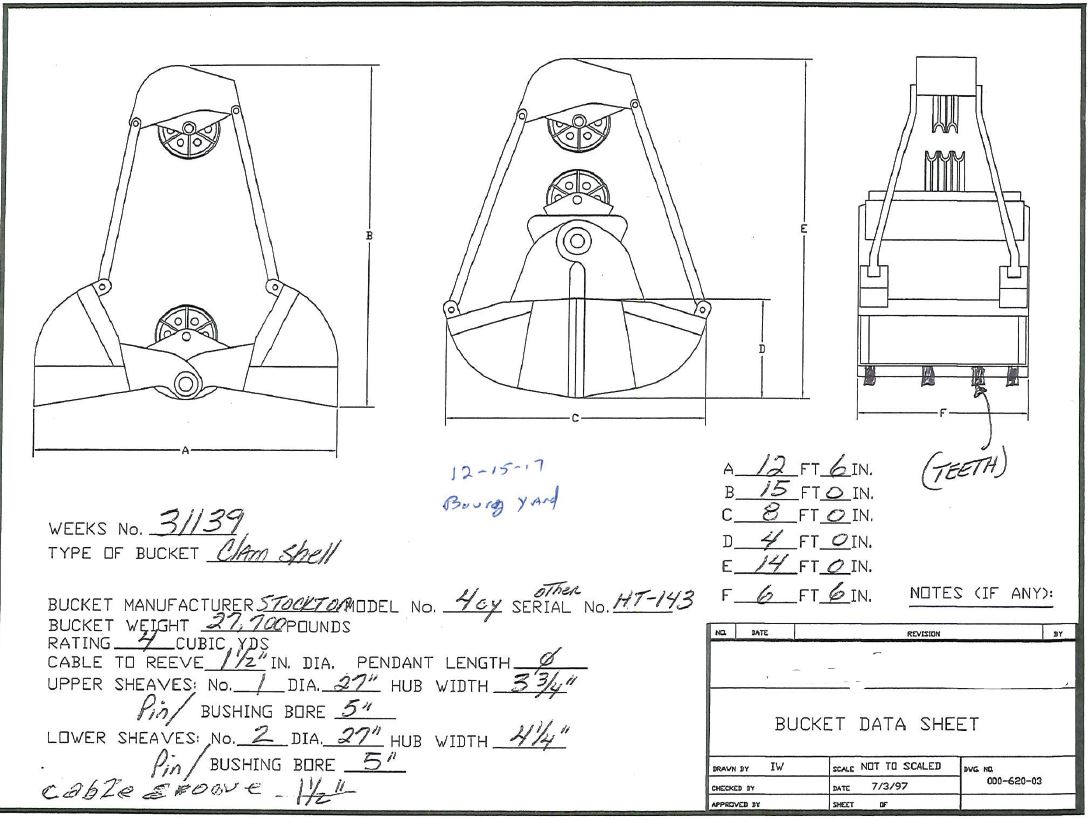 B
E
D
A
C
F
(TEETH)
12-15-17
Bourg Yard
A 12 FT 6 IN.
B 15 FT 0 IN.
C 8 FT 0 IN.
D 4 FT 0 IN.
E 14 FT 0 IN.
F 6 FT 6 IN.
NOTES (IF ANY):
WEEKS No. 31139
TYPE OF BUCKET Clam Shell
BUCKET MANUFACTURER STOCKTON MODEL No. 4cy other SERIAL No. HT-143
BUCKET WEIGHT 27,700 POUNDS
RATING 4 CUBIC YDS
CABLE TO REEVE 1 1/2" IN. DIA. PENDANT LENGTH Ø
UPPER SHEAVES: No. 1 DIA. 27" HUB WIDTH 3 3/4"
Pin/ BUSHING BORE 5"
LOWER SHEAVES: No. 2 DIA. 27" HUB WIDTH 4 1/4"
Pin/ BUSHING BORE 5"
cable groove - 1 1/2"
NO. DATE REVISION BY
BUCKET DATA SHEET
DRAWN BY IW SCALE NOT TO SCALED DWG. NO.
CHECKED BY DATE 7/3/97 000-620-03
APPROVED BY SHEET OF